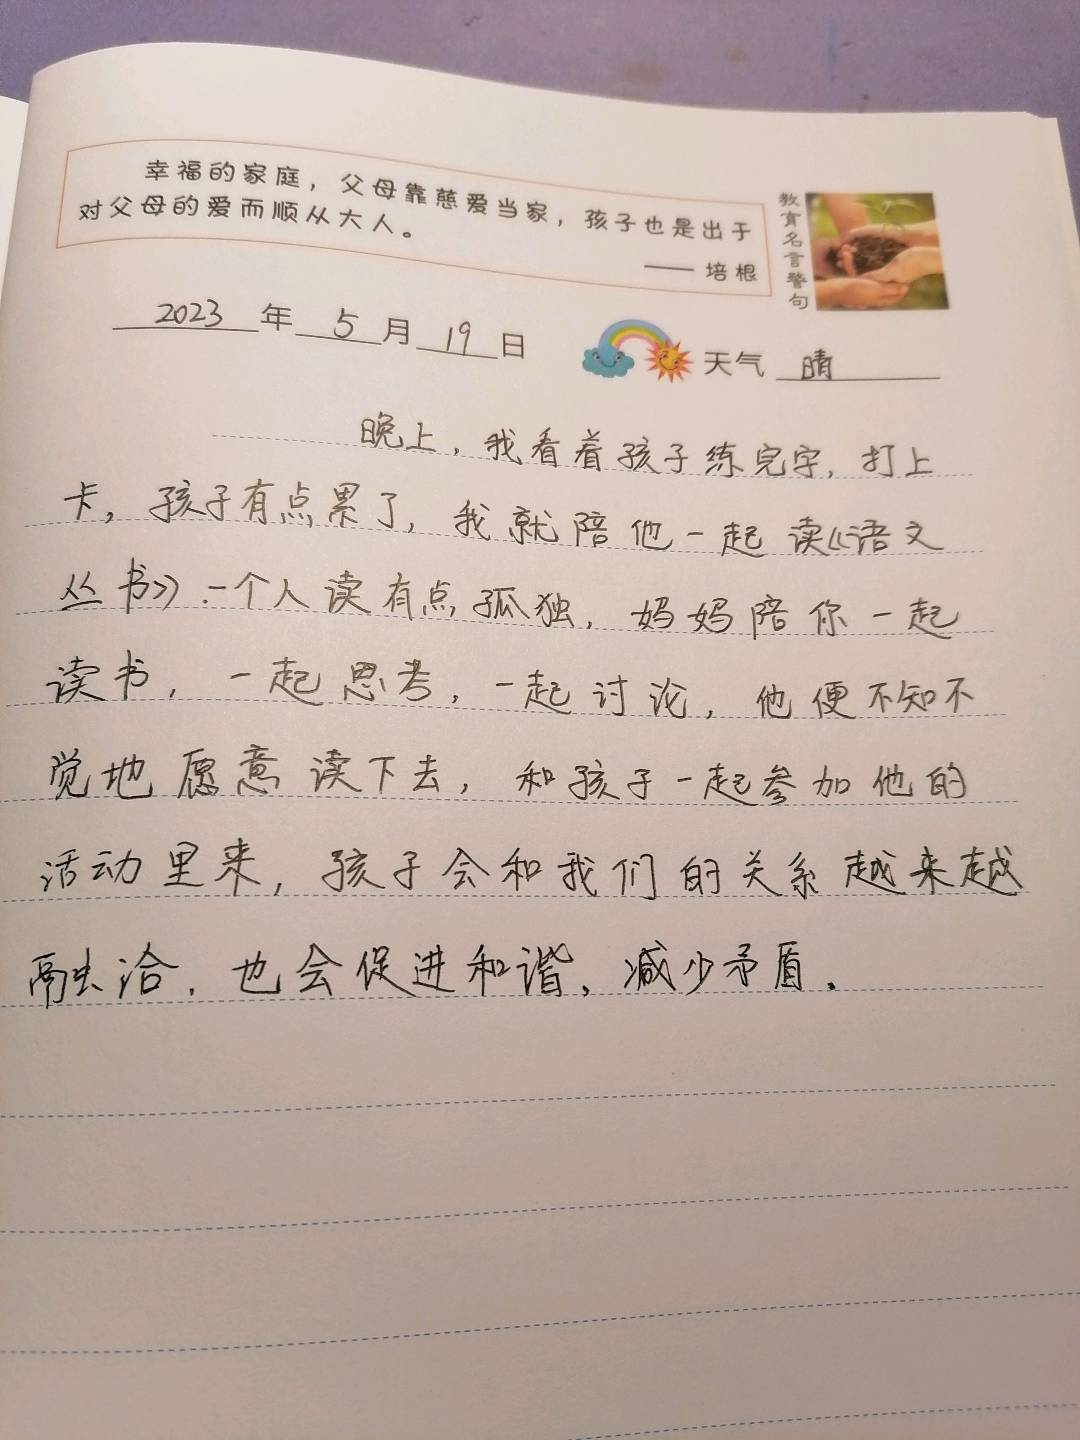 幸福的家庭，父母靠慈爱当家，孩子也是出于
对父母的爱而顺从大人。
—— 培根
教育名言警句
2023年5月19日
天气 晴
晚上，我看着孩子练完字，打上
卡，孩子有点累了，我就陪他一起读《语文
丛书》.一个人读有点孤独，妈妈陪你一起
读书，一起思考，一起讨论，他便不知不
觉地愿意读下去，和孩子一起参加他的
活动里来，孩子会和我们的关系越来越
融洽，也会促进和谐，减少矛盾。